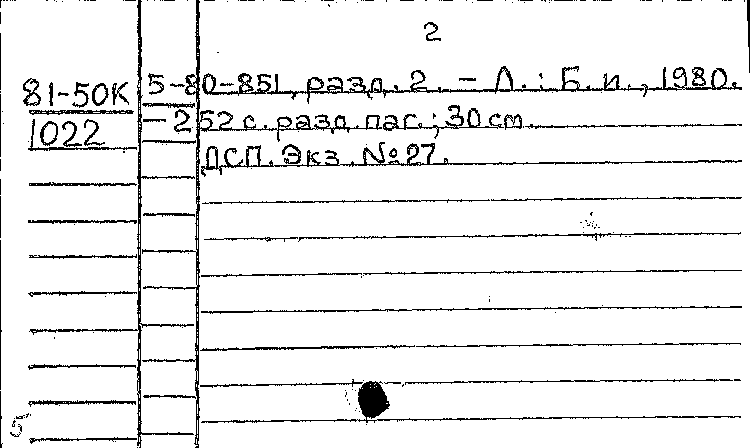 2
81-50К 5-80-851, разд. 2. - Л.: Б. и., 1980.
1022 - 252 с. разд. паг.; 30 см.
ДСП. Экз. № 27.
5